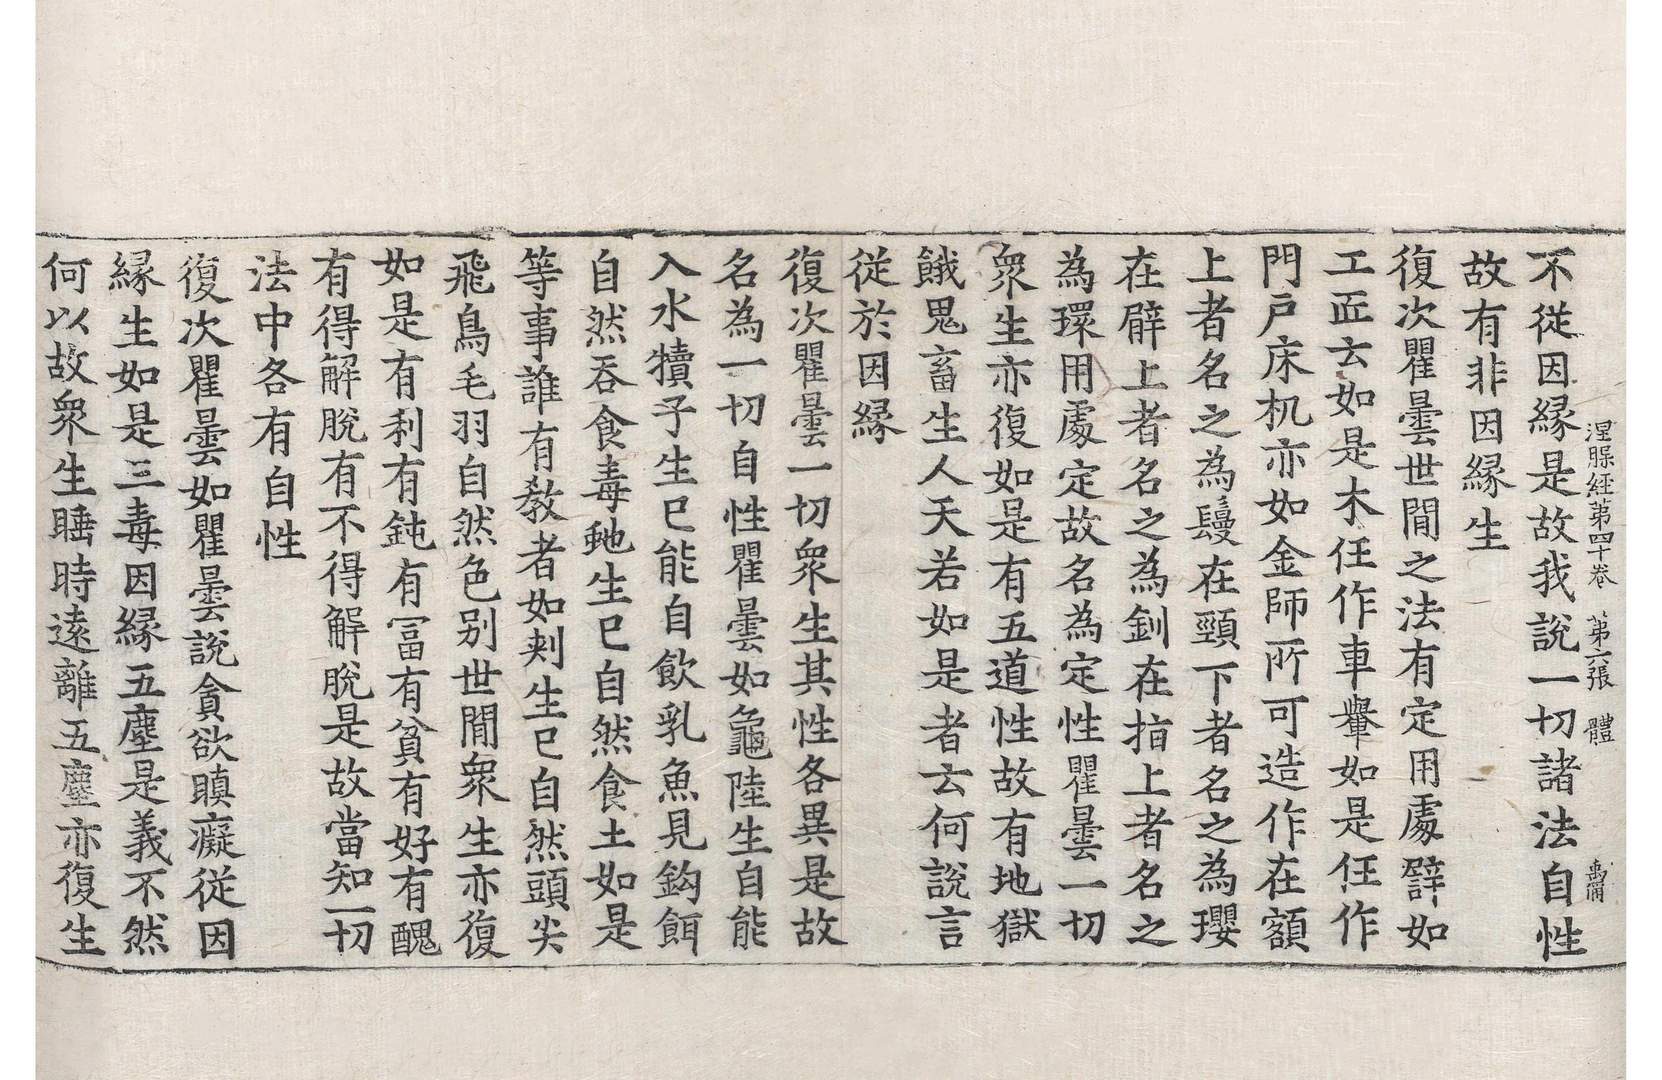 涅槃経苐四十卷　苐六張　體　禹甫
不従因縁是故我說一切諸法自性
故有非因縁生
復次瞿曇世間之法有定用䖏譬如
工匠云如是木任作車轝如是任作
門戸床机亦如金師所可造作在額
上者名之為鬘在頸下者名之為瓔
在臂上者名之為釧在指上者名之
為環用䖏定故名為定性瞿曇一切
衆生亦復如是有五道性故有地獄
餓鬼畜生人天若如是者云何說言
従於因縁
復次瞿曇一切衆生其性各異是故
名為一切自性瞿曇如龜陸生自能
入水犢子生已能自飲乳魚見鈎餌
自然吞食毒虵生已自然食土如是
等事誰有教者如刺生已自然頭尖
飛鳥毛羽自然色別世間衆生亦復
如是有利有鈍有冨有貧有好有醜
有得解脫有不得解脫是故當知一切
法中各有自性
復次瞿曇如瞿曇說貪欲瞋癡従因
縁生如是三毒因縁五塵是義不然
何以故衆生睡時遠離五塵亦復生